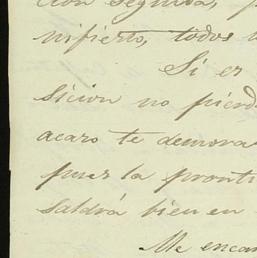 cion segura, p
nifierto, todos
Si es
sicion no pierd
acaro te demora
pues la pronti
saldrá bien en
Me encar